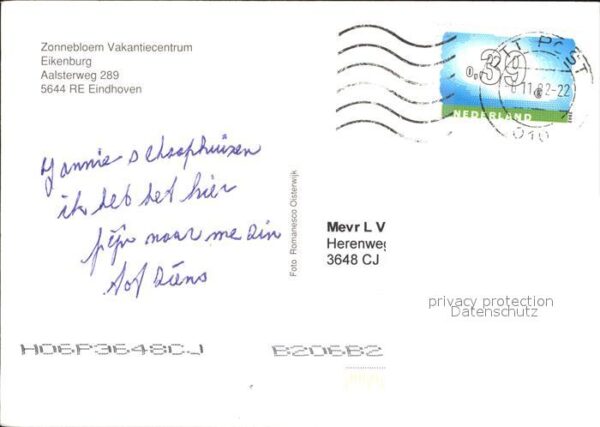 Zonnebloem Vakantiecentrum
Eikenburg
Aalsterweg 289
5644 RE Eindhoven
Jannie schaaphuizen
ik heb het hier
fijn naar me zin
tot ziens
Foto Romanesco Oisterwijk
TT POST
0,39
NEDERLAND
Mevr L V
Herenweg
3648 CJ
privacy protection
Datenschutz
H06P3648CJ
B206B2